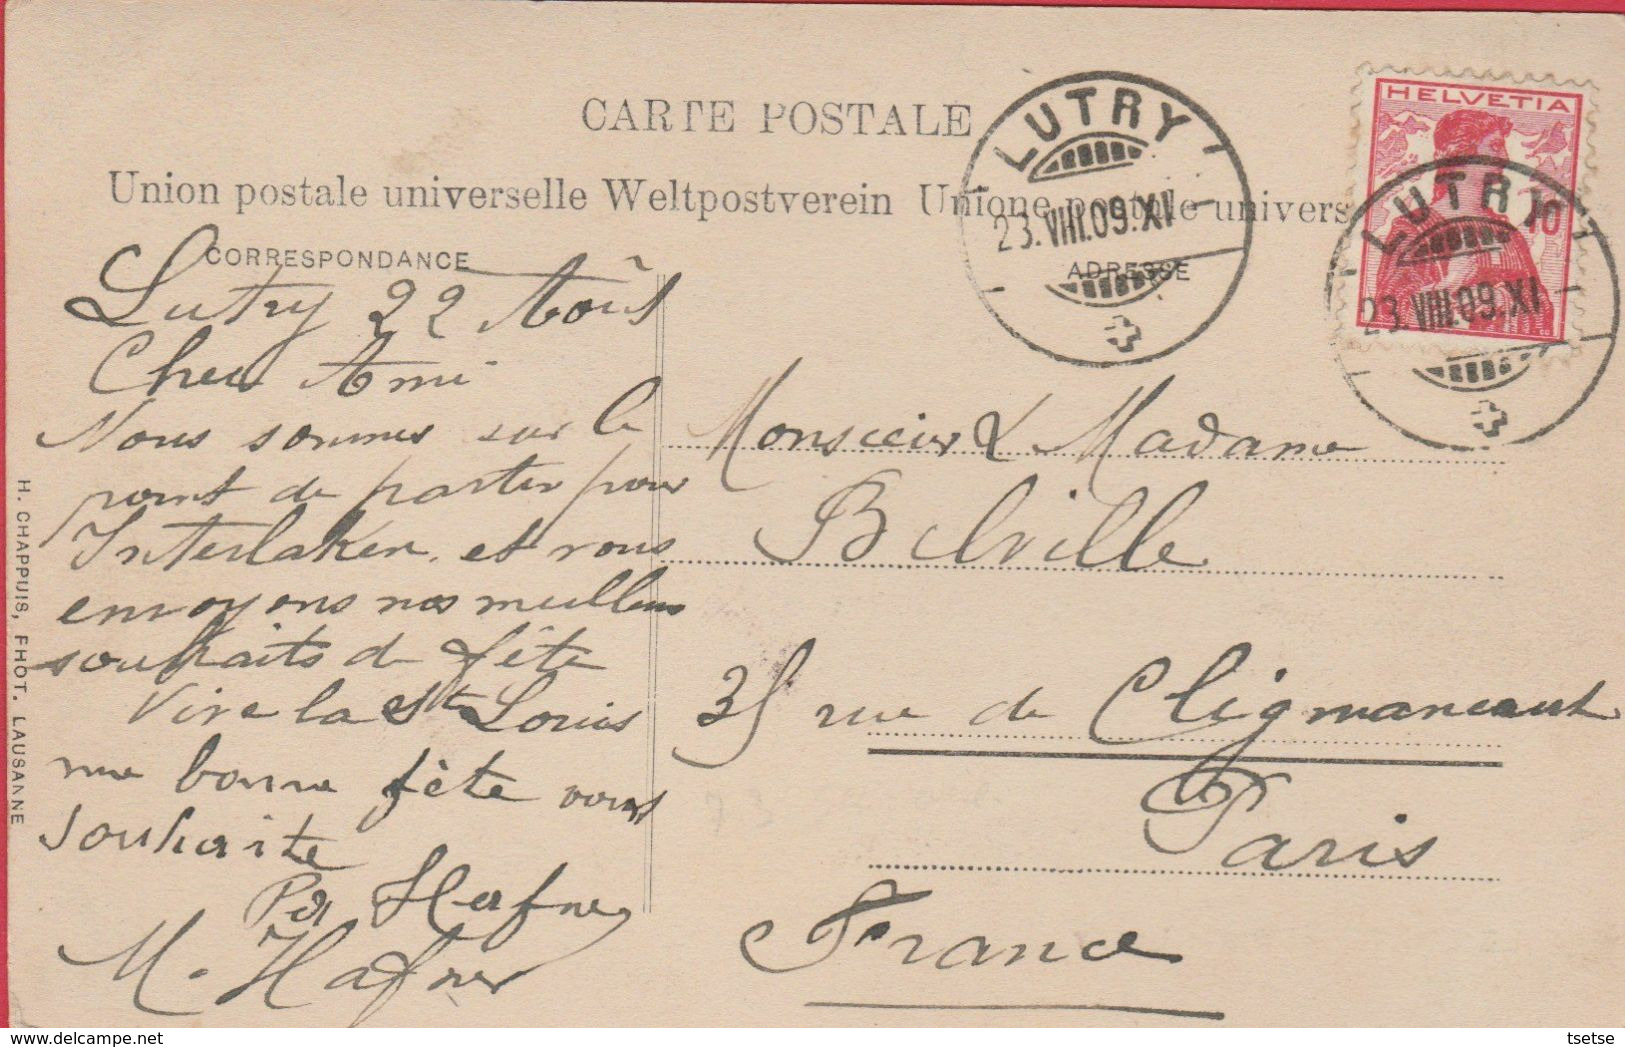 CARTE POSTALE
Union postale universelle Weltpostverein Unione postale univers
CORRESPONDANCE
ADRESSE
LUTRY
23.VIII.09.XI
HELVETIA
10
LUTRY
23.VIII.09.XI
Lutry 22 Août
Cher Ami
Nous sommes sur le
point de partir pour
Interlaken et vous
envoyons nos meilleurs
souhaits de fête
Vive la St Louis
une bonne fête vous
souhaite
Hafner
M. Hafner
Monsieur & Madame
Belville
35 rue de Clignancourt
Paris
France
H. CHAPPUIS, PHOT. LAUSANNE
tsetse